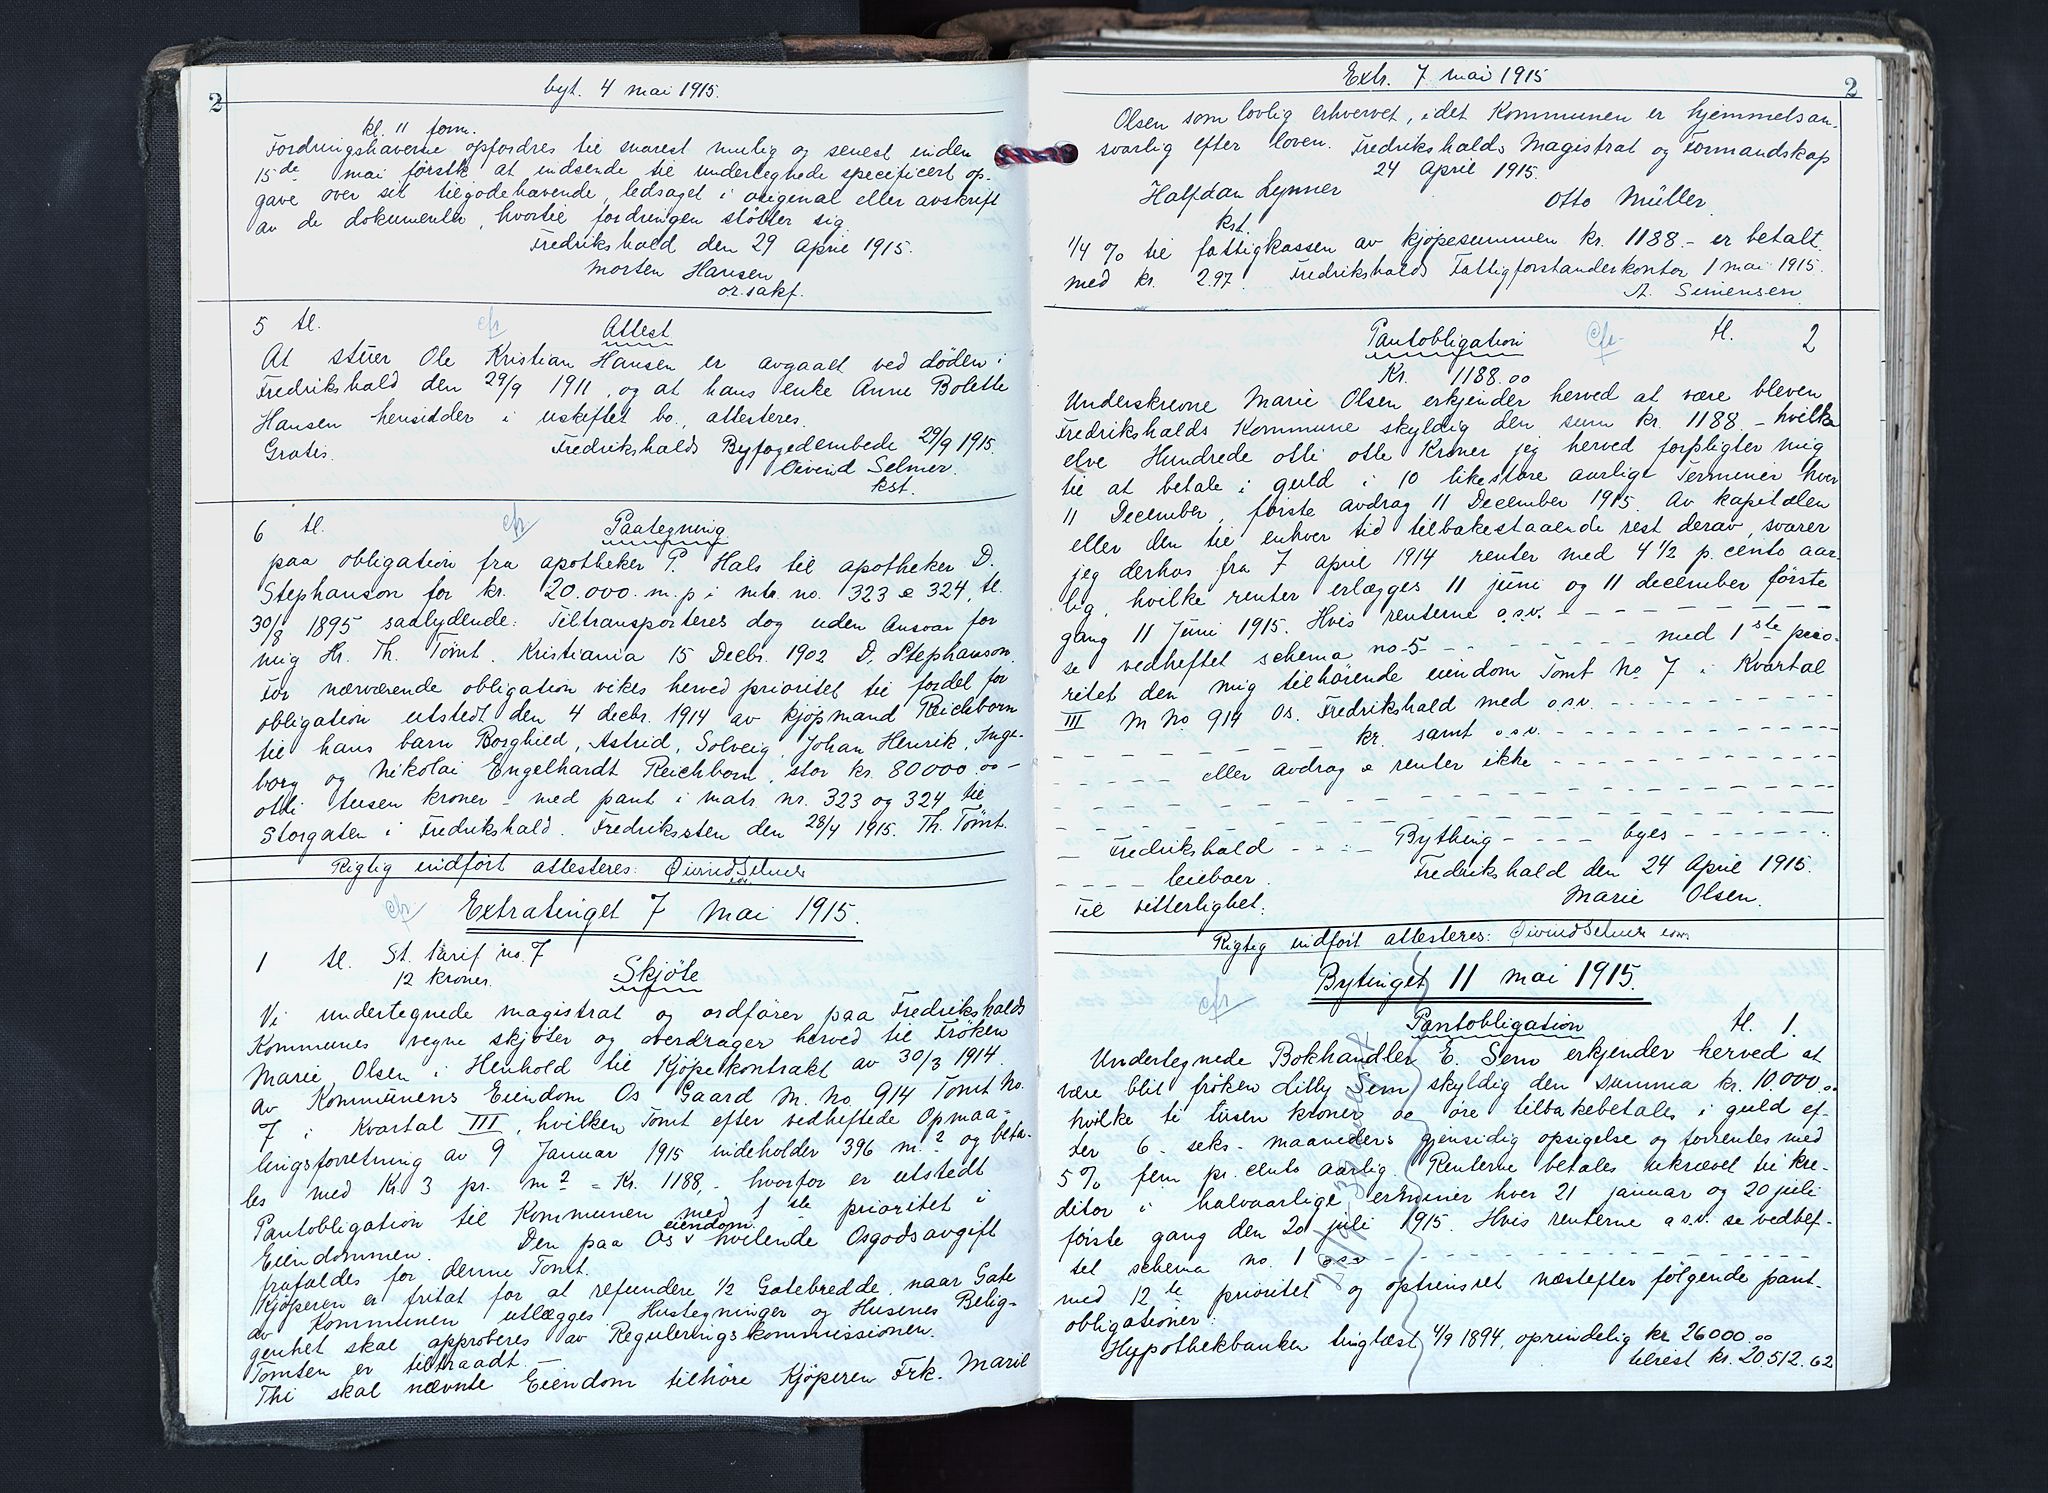 2
byt. 4 mai 1915.
kl. 11 form.
Fordringshaverne opfordres til snarest mulig og senest inden
15de mai førstk. at indsende til undertegnede specificert op-
gave over sit tilgodehavende, ledsaget i original eller avskrift
av de dokumenter, hvortil fordringen støtter sig
Fredrikshald den 29 April 1915.
Morten Hansen
o.r. sakf.
5 tl. cfr Attest
At stuer Ole Kristian Hansen er avgaaet ved døden i
Fredrikshald den 29/9 1911, og at hans enke Anne Bolette
Hansen hensidder i uskiftet bo, attesteres.
Gratis. Fredrikshalds Byfogedembede 29/9 1915.
Øivind Selmer.
kst.
6 tl. cfr Paategning
paa obligation fra apotheker P. Hals til apotheker D.
Stephanson for kr. 20.000. m. p i mtr. no. 323 & 324, tl.
30/8 1895 saalydende: Tiltransporteres dog uden Ansvar for
mig Hr. Th. Tømt. Kristiania 15 Decbr. 1902 D. Stephanson.
For nærværende obligation vikes herved prioritet til fordel for
obligation utstedt den 4 decbr. 1914 av kjøpmand Reichborn
til hans barn Borghild, Astrid, Solveig, Johan Henrik, Inge-
borg og Nikolai Engelhardt Reichborn, stor kr. 80000.00 -
otti tusen kroner - med pant i matr. nr. 323 og 324 til
Storgaten i Fredrikshald. Fredriksten den 28/4 1915. Th. Tømt.
Rigtig indført attesteres: Øivind Selmer
kst.
cfr Extratinget 7 mai 1915.
1 tl. St. tarif no. 7
12 kroner. Skjøte
Vi undertegnede magistrat og ordfører paa Fredrikshalds
Kommunes vegne skjøter og overdrager herved til Frøken
Marie Olsen i Henhold til Kjøpekontrakt av 30/3 1914.
Av Kommunens Eiendom Os Gaard M. No. 914 Tomt No.
7 i Kvartal III, hvilken Tomt efter vedheftede Opmaa-
lingsforretning av 9 Januar 1915 indeholder 396 m.2 og beta-
les med Kr. 3 pr. m2 = Kr. 1188,- hvorfor er utstedt
Pantobligation til Kommunen med 1ste prioritet i
Eiendommen. Den paa Os eiendom hvilende Osgodsavgift
frafaldes for denne Tomt.
Kjøperen er fritat for at refundere 1/2 Gatebredde, naar Gate
av Kommunen utlægges Hustegninger og Husenes Belig-
genhet skal approberes av Reguleringskommissionen.
Tomten er tiltraadt.
Thi skal nævnte Eiendom tilhøre Kjøperen Frk. Marie
Extr. 7 mai 1915
2
Olsen som lovlig erhvervet, idet Kommunen er hjemmelsan-
svarlig efter loven. Fredrikshalds Magistrat og Formandskap
24 April 1915.
Halfdan Lynner Otto Müller
kst.
1/4 % til fattigkassen av kjøpesummen kr. 1188.- er betalt
med kr. 2.97. Fredrikshalds Fattigforstanderkontor 1 mai 1915.
A. Simensen
Pantobligation cfr. tl. 2
Kr. 1188.00
Underskrevne Marie Olsen erkjender herved at være bleven
Fredrikshalds Kommune skyldig den sum kr. 1188 - hvilke
elve Hundrede otti otte Kroner jeg herved forpligter mig
til at betale i guld i 10 likestore aarlige Terminer hver
11 December, første avdrag 11 December 1915. Av kapitalen
eller den til enhver tid tilbakestaaende rest derav, svarer
jeg derhos fra 7 april 1914 renter med 4 1/2 p. cento aar-
lig, hvilke renter erlægges 11 juni og 11 december første
gang 11 Juni 1915. Hvis renterne o.s.v. - - - - - - - -
se vedheftet schema no 5 - - - - - - med 1ste prio-
ritet den mig tilhørende eiendom Tomt No. 7 i Kvartal
III M No. 914 Os. Fredrikshald med o.s.v. - - - - - - -
kr. samt o.s.v. - - - - - - -
- - - - - eller avdrag & renter ikke - - - - - - -
- - - - - - - - - - - - - - -
- Fredrikshald - - - - Bything - - - - byes - - - - - -
- - - - leieboer. Fredrikshald den 24 April 1915.
Til vitterlighet. Marie Olsen.
Rigtig indført attesteres: Øivind Selmer kst.
cfr Bytinget 11 mai 1915.
Pantobligation tl. 1.
Undertegnede Bokhandler E. Sem erkjender herved at
være blit frøken Lilly Sem skyldig den summa kr. 10.000.00
hvilke ti tusen kroner 00 øre tilbakebetales i guld ef-
ter 6 - seks - maaneders gjensidig opsigelse og forrentes med
5 % fem pr. cento aarlig. Renterne betales ukrævet til kre-
ditor i halvaarlige terminer hver 21 januar og 20 juli
første gang den 20 juli 1915. Hvis renterne o.s.v. se vedhef-
tet schema no. 1 o.s.v. - - - - - - - - - -
med 12te prioritet og optrinsret næstefter følgende pant-
obligationer:
Hypothekbanken tinglæst 4/9 1894, oprindelig kr. 26000.00
tilrest kr. 20.512.62